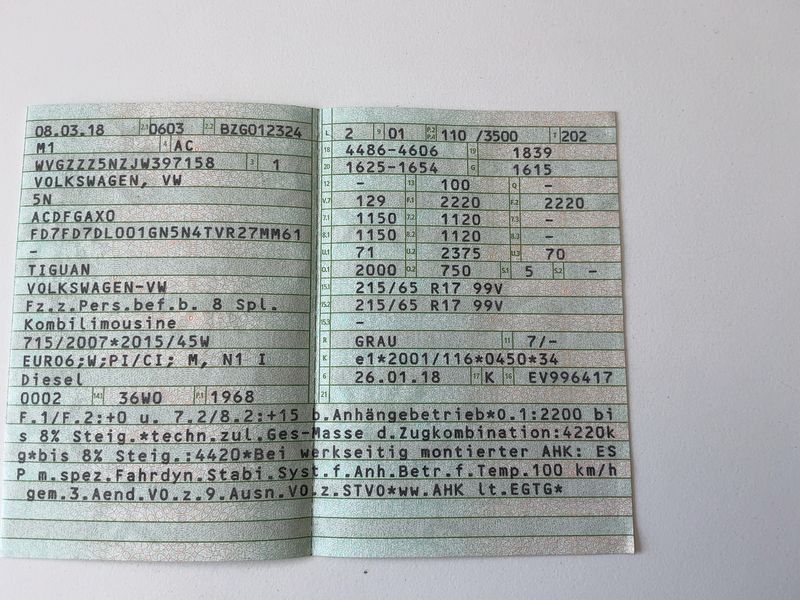 08.03.18 2.1 0603 2.2 BZG012324
M1 4 AC
WVGZZZ5NZJW397158 3 1
VOLKSWAGEN, VW
5N
ACDFGAX0
FD7FD7DL001GN5N4TVR27MM61
-
TIGUAN
VOLKSWAGEN-VW
Fz.z.Pers.bef.b. 8 Spl.
Kombilimousine
715/2007*2015/45W
EURO6;W;PI/CI; M, N1 I
Diesel
0002 14.1 36W0 P.1 1968
L 2 9 01 110 /3500 T 202
18 4486-4606 19 1839
20 1625-1654 G 1615
12 - 13 100 Q -
V.7 129 F.1 2220 F.2 2220
7.1 1150 7.2 1120 7.3 -
8.1 1150 8.2 1120 8.3 -
U.1 71 U.2 2375 U.3 70
O.1 2000 O.2 750 S.1 5 S.2 -
15.1 215/65 R17 99V
15.2 215/65 R17 99V
15.3 -
R GRAU 11 7/-
K e1*2001/116*0450*34
6 26.01.18 17 K 16 EV996417
21
F.1/F.2:+0 u. 7.2/8.2:+15 b.Anhängebetrieb*0.1:2200 bi
s 8% Steig.*techn.zul.Ges-Masse d.Zugkombination:4220k
g*bis 8% Steig.:4420*Bei werkseitig montierter AHK: ES
P m.spez.Fahrdyn.Stabi.Syst.f.Anh.Betr.f.Temp.100 km/h
gem.3.Aend.VO.z.9.Ausn.VO.z.STVO*ww.AHK lt.EGTG*